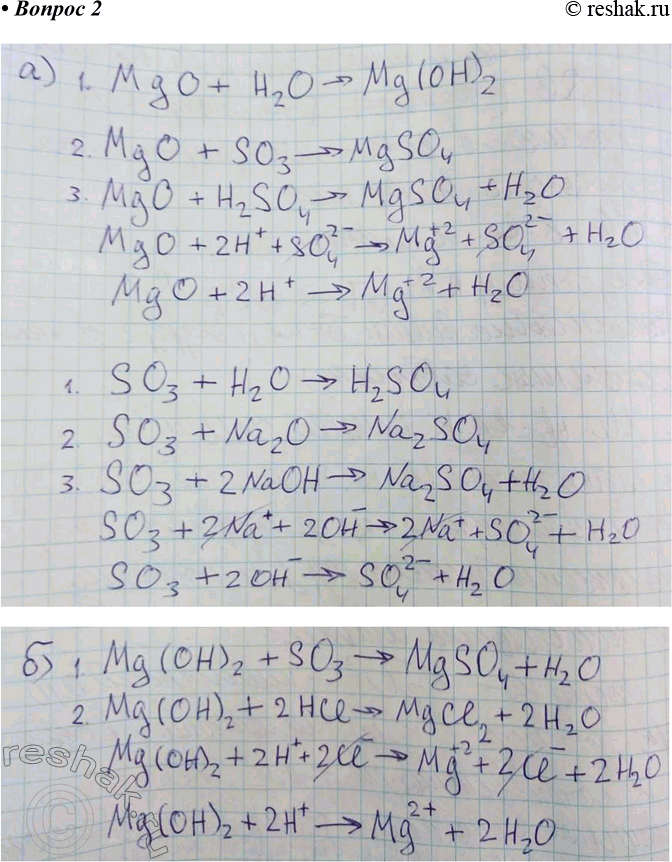 • Вопрос 2
© reshak.ru
а) 1. MgO + H₂O → Mg(OH)₂
2. MgO + SO₃ → MgSO₄
3. MgO + H₂SO₄ → MgSO₄ + H₂O
MgO + 2H⁺ + SO₄²⁻ → Mg⁺² + SO₄²⁻ + H₂O
MgO + 2H⁺ → Mg⁺² + H₂O
1. SO₃ + H₂O → H₂SO₄
2. SO₃ + Na₂O → Na₂SO₄
3. SO₃ + 2NaOH → Na₂SO₄ + H₂O
SO₃ + 2Na⁺ + 2OH⁻ → 2Na⁺ + SO₄²⁻ + H₂O
SO₃ + 2OH⁻ → SO₄²⁻ + H₂O
б) 1. Mg(OH)₂ + SO₃ → MgSO₄ + H₂O
2. Mg(OH)₂ + 2HCl → MgCl₂ + 2H₂O
Mg(OH)₂ + 2H⁺ + 2Cl⁻ → Mg⁺² + 2Cl⁻ + 2H₂O
Mg(OH)₂ + 2H⁺ → Mg²⁺ + 2H₂O
reshak.ru